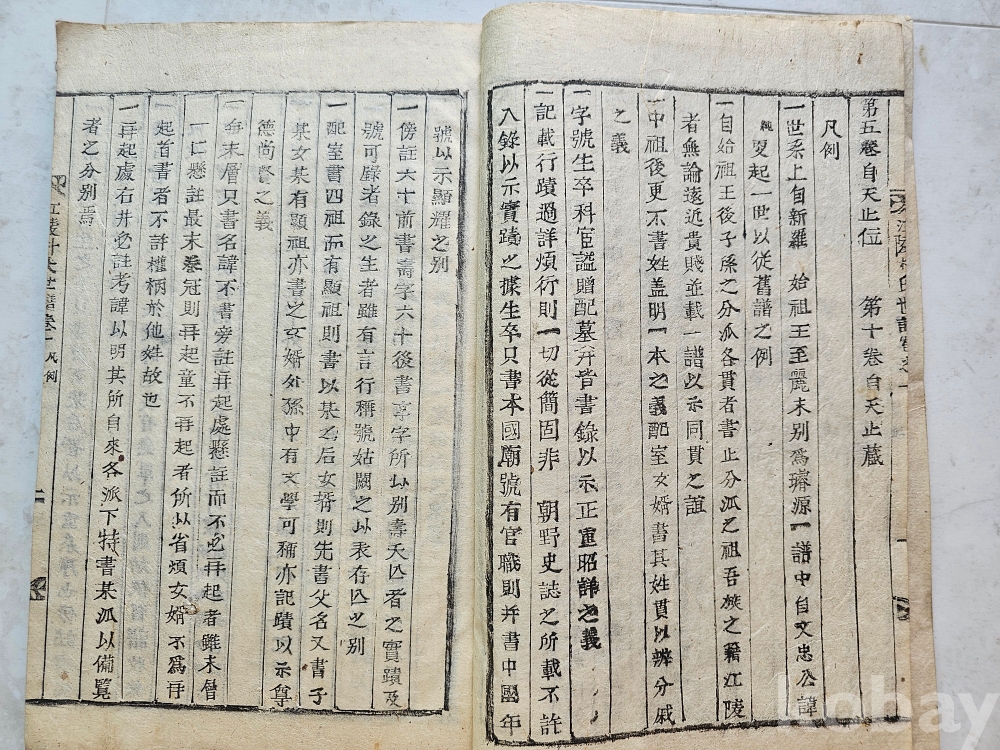 第五卷自天止位　第十卷自天止蔵
凡例
一世系上自新羅　始祖王至麗末别爲璿源一譜中自文忠公諱
純更起一世以從舊譜之例
一自始祖王後子孫之分派各貫者書止分派之祖吾族之籍江陵
者無論遠近貴賤並載一譜以示同貫之誼
一中祖後更不書姓盖明一本之義配室女婿書其姓貫以辨分戚
之義
一字號生卒科宦謚贈配墓并皆書錄以示正重昭詳之義
一記載行蹟過詳煩衍則一切從簡固非　朝野史誌之所載不許
入錄以示實蹟之據生卒只書本國廟號有官職則并書中國年
號以示顯耀之别
一傍註六十前書壽字六十後書享字所以别壽夭亡者之實蹟及
號可錄者錄之生者雖有言行稱號姑闕之以表存亡之别
一配室書四祖而有顯祖則書以某之后女婿則先書父名又書子
某女某有顯祖亦書之女婿外孫中有文學可稱亦記蹟以示尊
德尚賢之義
一每末層只書名諱不書旁註再起處懸註而不必再起者雖末層
一仁懸註最末卷冠則再起童不再起者所以省煩女婿不爲再
起首書者不許權柄於他姓故也
一再起處右并必註考諱以明其所自來各派下特書某派以備覧
者之分别焉
江陵金氏世譜卷之一
凡例
二
kobay